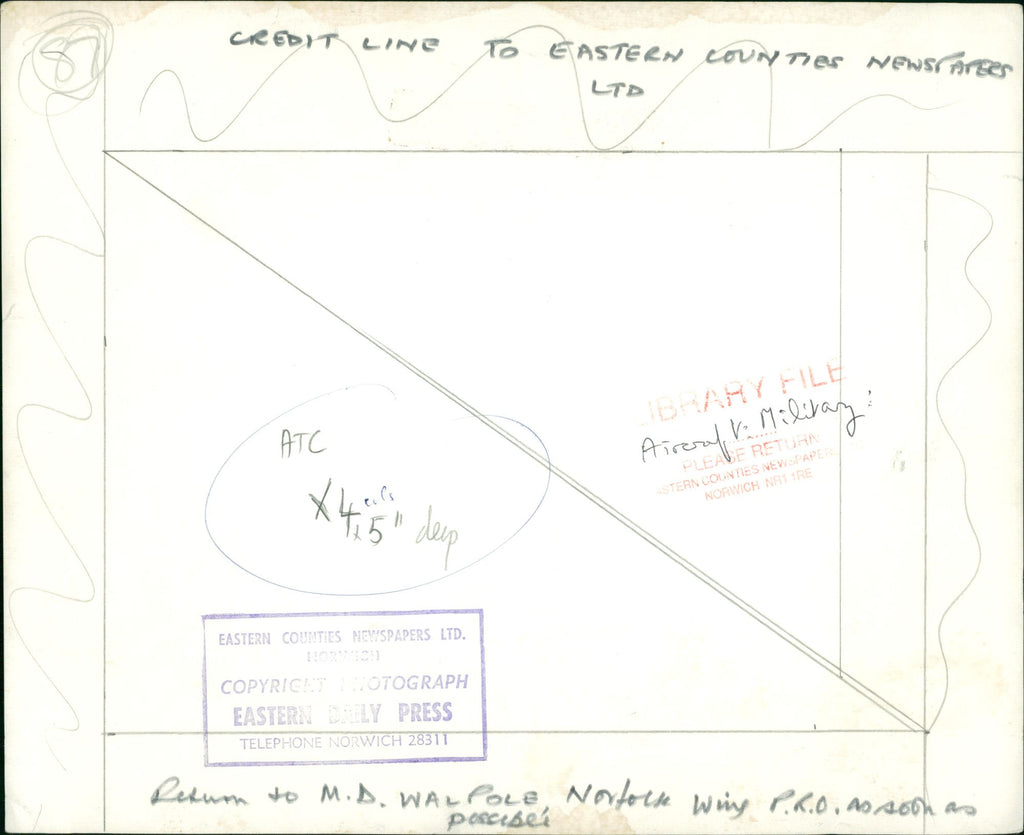 87
CREDIT LINE TO EASTERN COUNTIES NEWSPAPERS
LTD
LIBRARY FILE
Aircraft: Military:
PLEASE RETURN
EASTERN COUNTIES NEWSPAPERS
NORWICH NR1 1RE
ATC
X 4 cols
x 5" deep
EASTERN COUNTIES NEWSPAPERS LTD.
NORWICH
COPYRIGHT PHOTOGRAPH
EASTERN DAILY PRESS
TELEPHONE NORWICH 28311
Return to M.D. WALPOLE, Norfolk Wing P.R.O. as soon as
possible